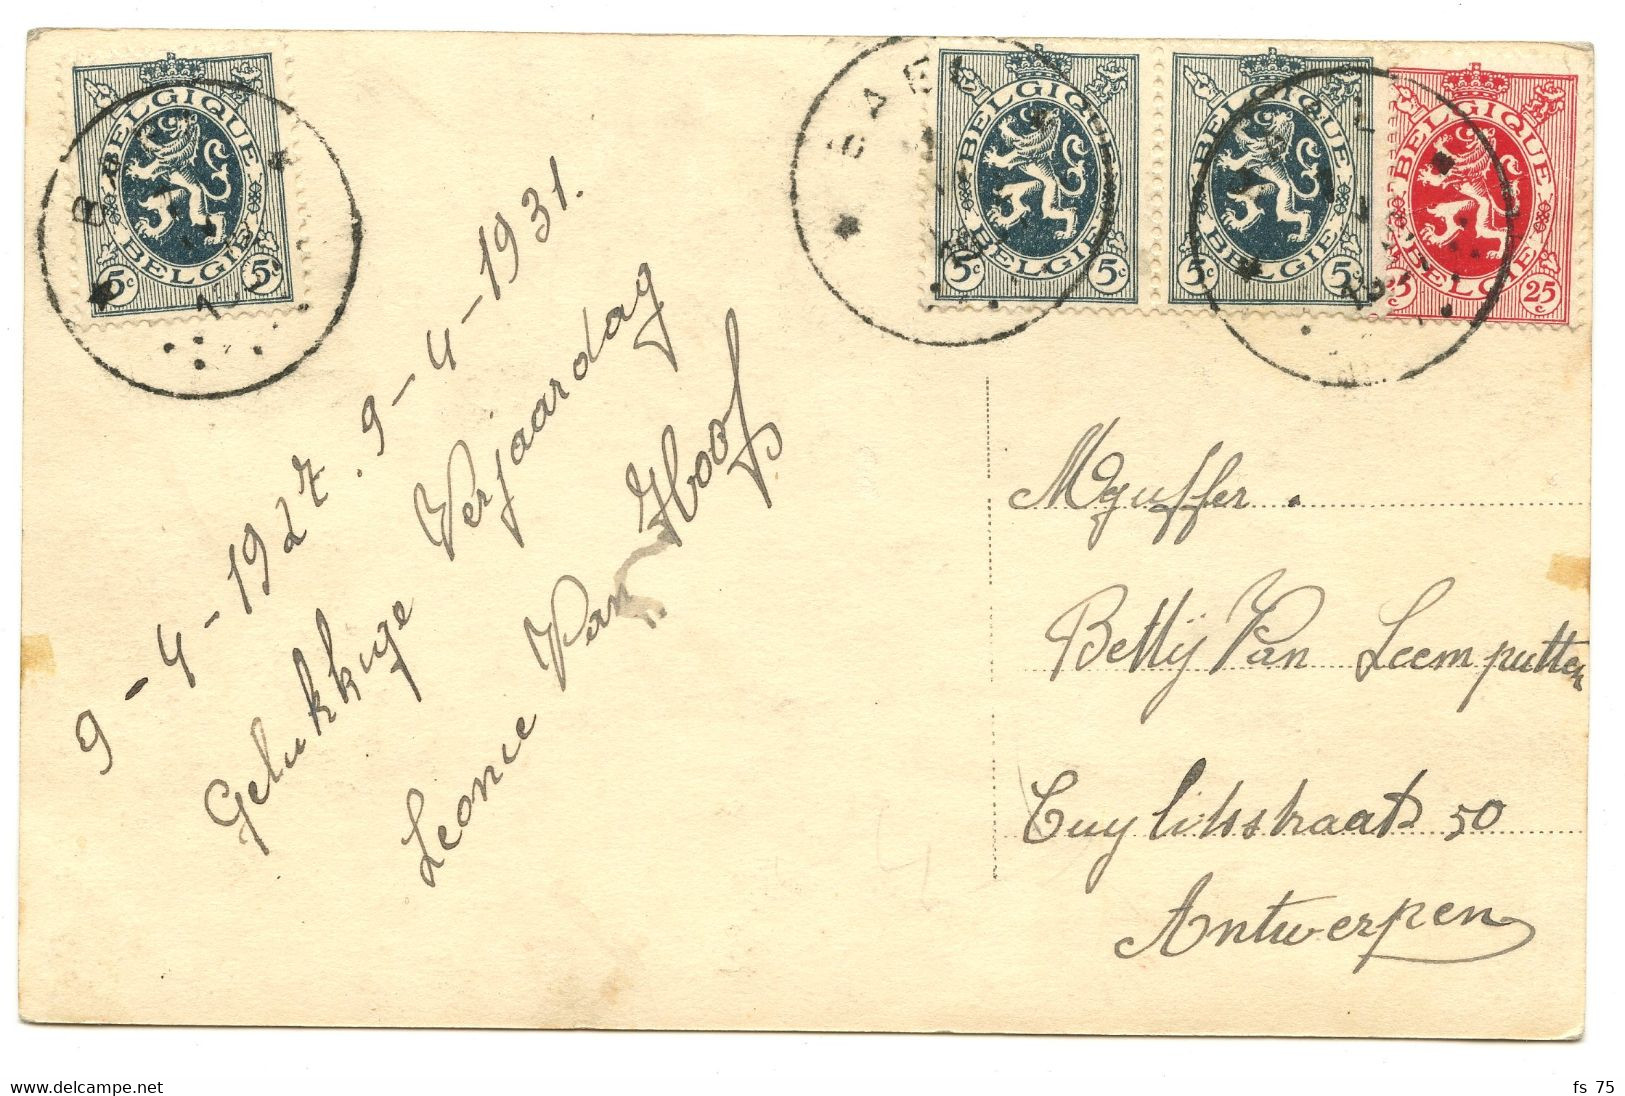 BELGIQUE
BELGIE
5c 5c
BAEL
BELGIQUE
BELGIE
5c 5c
BELGIQUE
BELGIE
5c 5c
BELGIQUE
BELGIE
25c
9-4-1927. 9-4-1931.
Gelukkige Verjaardag
Leonie Van Hoof
Mejuffer.
Bettÿ Van Leemputten
Cuylitsstraat 50
Antwerpen
www.delcampe.net
fs 75